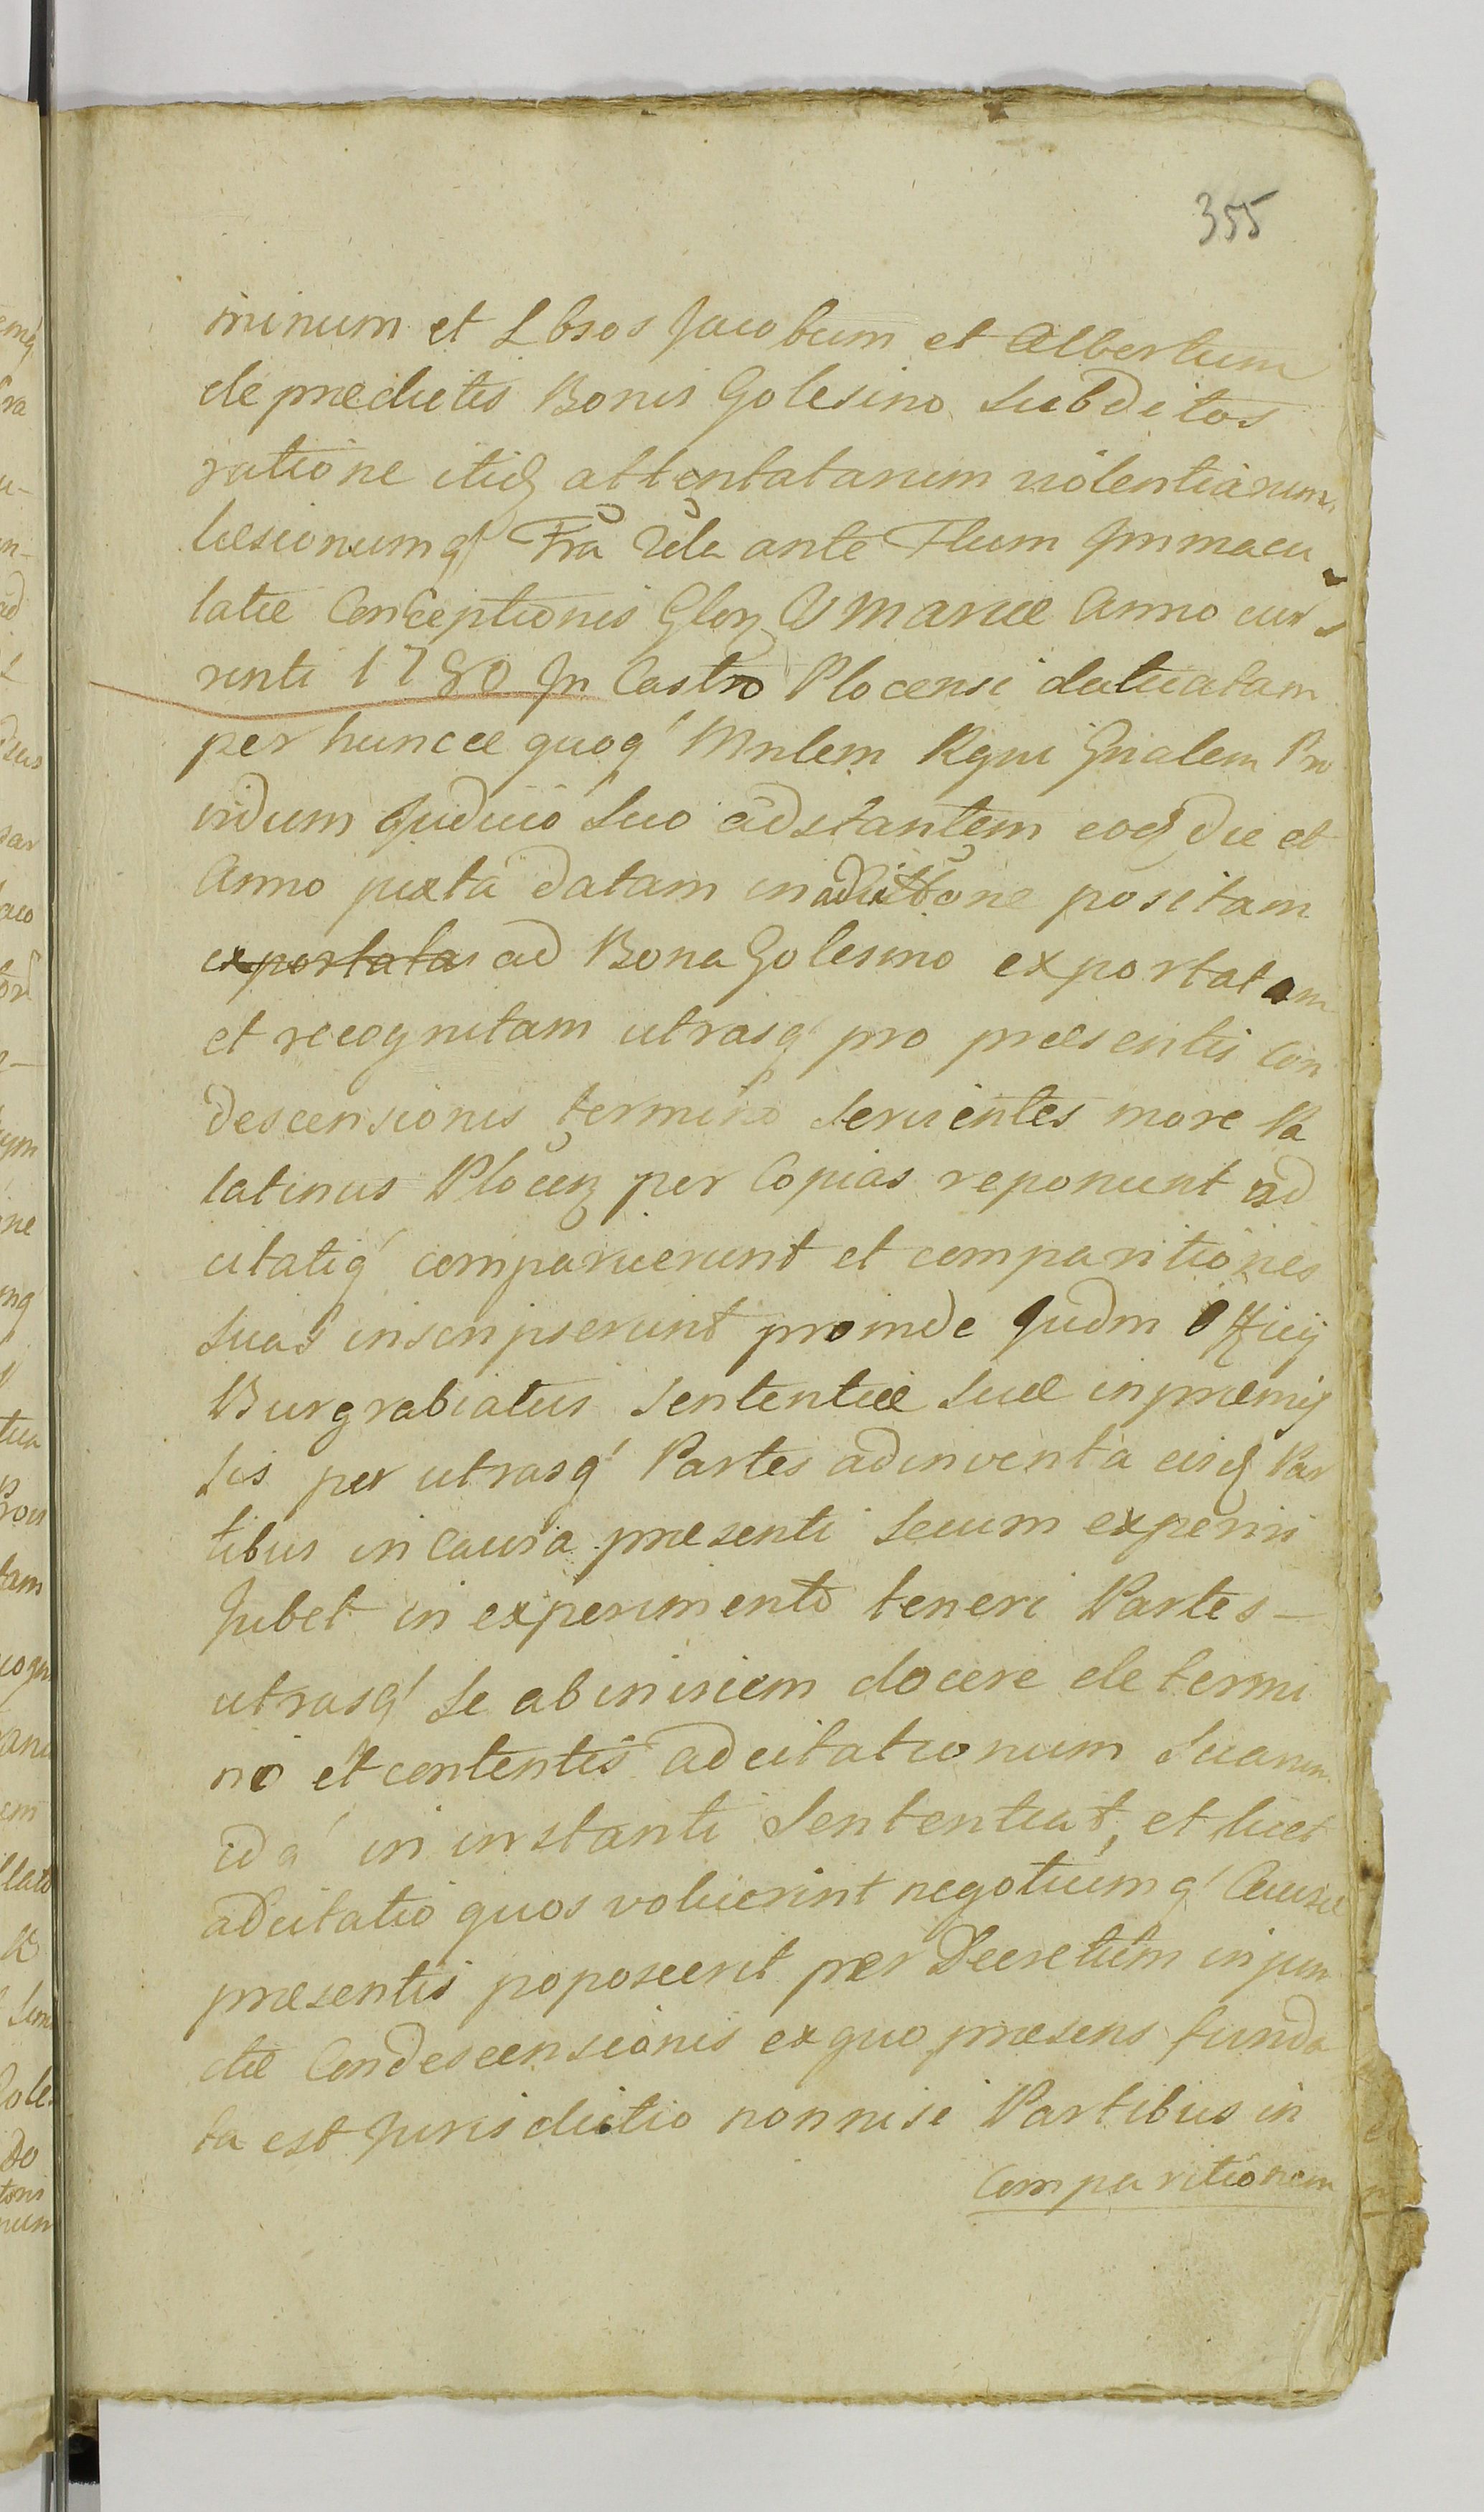 355
minum et Lbsos Jacobum et Albertum
de praedictis Bonis Golesino Subditos
ratione itidq attentatarum violentiarum
laesionumq Fra Vila ante Fstum Immacu
latae Conceptionis Glorz V Mariae Anno cur
renti 1780 In Castro Plocensi datuatam
per huncce quoq Mnlem Rgni Gnalem Pro
vidum Judicio Suo adstantem eodq die et
Anno juxta datam in adictione positam
exportatas ad Bona Golesino exportatam
et recognitam utrasq pro praesentis Con
descensionis termino Servientes more Pa
latinus Plocenz per Copias reponunt ad
citatiq comparuerunt et comparitiones
Suas inscripserunt proinde Judm Officij
Burgrabiatus Sententiae Suae in praemis
sis per utrasq Partes adinventa eisdq Par
tibus in Causa praesenti Secum experiri
Jubet in experimento teneri Partes -
utrasq Se abinvicem docere de termi
no et contentis adcitationum Suarum
idq in instanti Sententiat, et licet
adcitatio quos voluerint negotiumq Causae
praesentis poposcerit per Decretum injun
ctae Condescensionis ex quo praesens funda
ta est Jurisdictio nonnisi Partibus in
Comparitionem